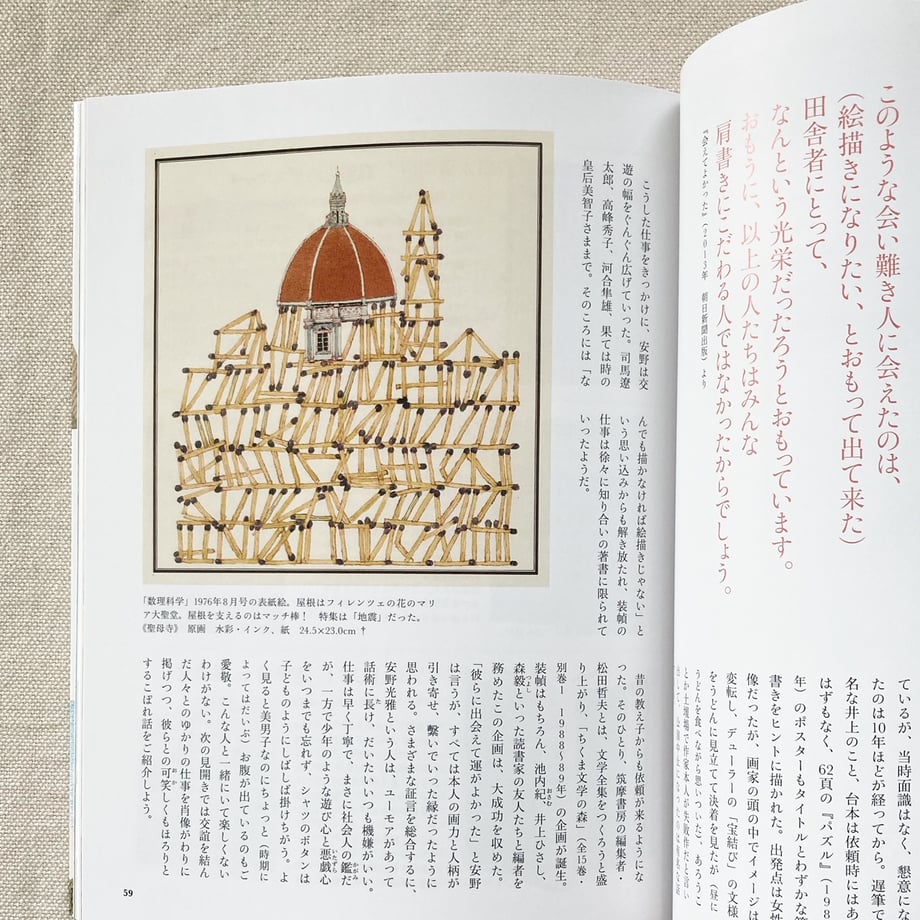 このような会い難き人に会えたのは、
(絵描きになりたい、とおもって出て来た)
田舎者にとって、
なんという光栄だったろうとおもっています。
おもうに、以上の人たちはみんな
肩書きにこだわる人ではなかったからでしょう。
『会えてよかった』(2013年 朝日新聞出版)より
ているが、当時面識はなく、懇意にな
たのは10年ほどが経ってから。遅筆で
名な井上のこと、台本は依頼時にはあ
はずもなく、62頁の『パズル』(19
年)のポスターもタイトルとわずかな
書きをヒントに描かれた。出発点は女性
像だったが、画家の頭の中でイメージは
変転し、デューラーの「宝結び」の文様
をうどんに見立てて決着を見たが(昼に
うどんを食べながら思いついた)、あろうこ
こうした仕事をきっかけに、安野は交
遊の幅をぐんぐん広げていった。司馬遼
太郎、高峰秀子、河合隼雄、果ては時の
皇后美智子さままで。そのころには「な
んでも描かなければ絵描きじゃない」と
いう思い込みからも解き放たれ、装幀の
仕事は徐々に知り合いの著書に限られて
いったようだ。
「数理科学」1976年8月号の表紙絵。屋根はフィレンツェの花のマリ
ア大聖堂。屋根を支えるのはマッチ棒! 特集は「地震」だった。
《聖母寺》 原画 水彩・インク、紙 24.5×23.0cm †
昔の教え子からも依頼が来るようにな
った。そのひとり、筑摩書房の編集者・
松田哲夫とは、文学全集をつくろうと盛
り上がり、「ちくま文学の森」(全15巻・
別巻1 1988〜89年)の企画が誕生。
装幀はもちろん、池内紀、井上ひさし、
森毅といった読書家の友人たちと編者を
務めたこの企画は、大成功を収めた。
「彼らに出会えて運がよかった」と安野
は言うが、すべては本人の画力と人柄が
引き寄せ、繫いでいった縁だったように
思われる。さまざまな証言を総合するに、
安野光雅という人は、ユーモアがあって
話術に長け、だいたいいつも機嫌がいい。
仕事は早く丁寧で、まさに社会人の鑑だ
が、一方で少年のような遊び心と悪戯心
をいつまでも忘れず、シャツのボタンは
子どものようにしばしば掛けちがう。よ
く見ると美男子なのにちょっと(時期に
よってはだいぶ)お腹が出ているのもご
愛敬。こんな人と一緒にいて楽しくない
わけがない。次の見開きでは交誼を結ん
だ人々とのゆかりの仕事を肖像がわりに
掲げつつ、彼らとの可笑しくもほろりと
するこぼれ話をご紹介しよう。
59